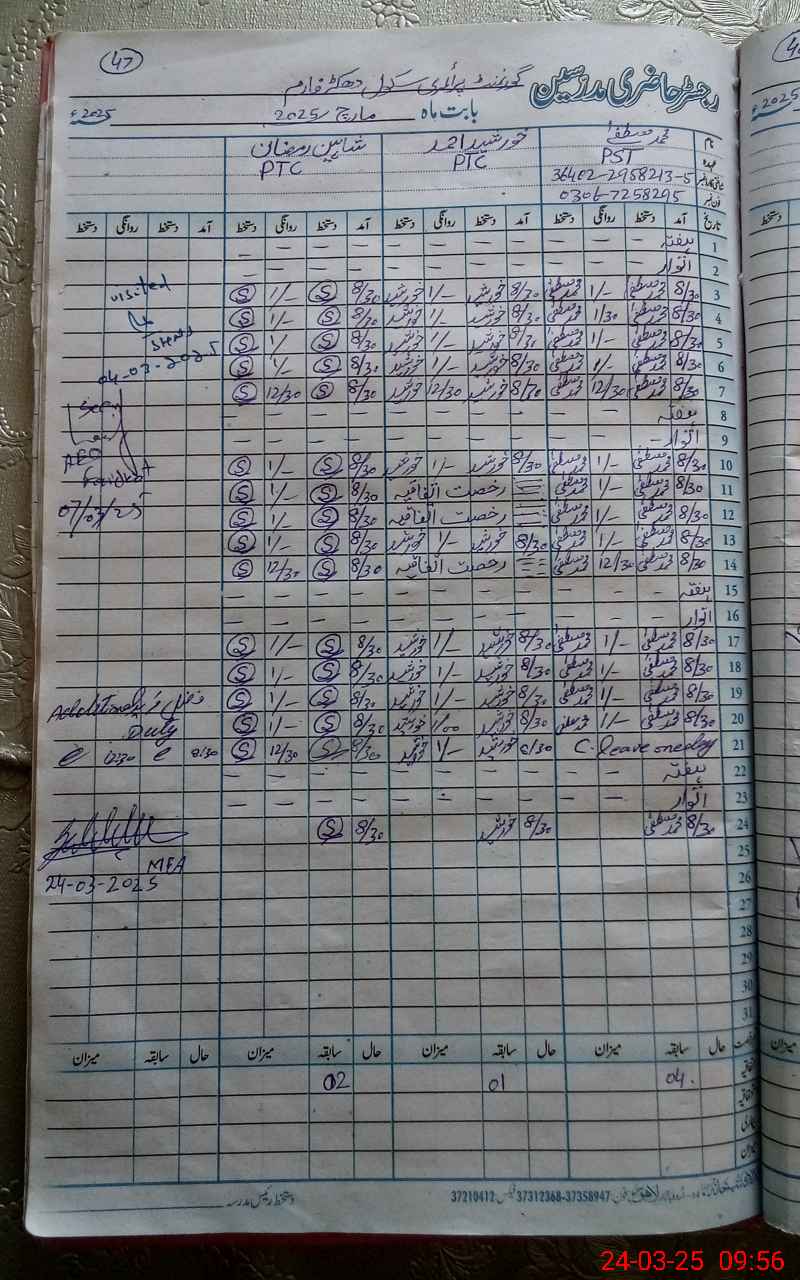 47
رجسٹر حاضری مدرسین گورنمنٹ پرائمری سکول
بابت ماہ مارچ 2025 2025ء
نام محمد مصطفیٰ خورشید احمد شاہین رمضان
عہدہ PST PTC PTC
36402-2958213-5
فون نمبر 0306-7258295
تاریخ آمد دستخط روانگی دستخط آمد دستخط روانگی دستخط آمد دستخط روانگی دستخط آمد دستخط روانگی دستخط
1 ہفتہ — — — — — — — — — — —
2 اتوار — — — — — — — — — — —
3 8/30 محمد مصطفیٰ 1/- محمد مصطفیٰ 8/30 خورشید 1/- خورشید 8/30 S 1/- S visited
4 8/30 محمد مصطفیٰ 1/30 محمد مصطفیٰ 8/30 خورشید 1/- خورشید 8/30 S 1/- S
5 8/30 محمد مصطفیٰ 1/- محمد مصطفیٰ 8/30 خورشید 1/- خورشید 8/30 S 1/- S
6 8/30 محمد مصطفیٰ 1/- محمد مصطفیٰ 8/30 خورشید 1/- خورشید 8/30 S 1/- S 04-03-2025
7 8/30 محمد مصطفیٰ 12/30 محمد مصطفیٰ 8/30 خورشید 12/30 خورشید 8/30 S 12/30 S
8 ہفتہ — — — — — — — — — — — Seen
9 اتوار — — — — — — — — — — —
10 8/30 محمد مصطفیٰ 1/- محمد مصطفیٰ 8/30 خورشید 1/- خورشید 8/30 S 1/- S AEO
11 8/30 محمد مصطفیٰ 1/- محمد مصطفیٰ رخصت اتفاقیہ 8/30 S 1/- S
12 8/30 محمد مصطفیٰ 1/- محمد مصطفیٰ رخصت اتفاقیہ 8/30 S 1/- S 07/03/25
13 8/30 محمد مصطفیٰ 1/- محمد مصطفیٰ 8/30 خورشید 1/- خورشید 8/30 S 1/- S
14 8/30 محمد مصطفیٰ 12/30 محمد مصطفیٰ رخصت اتفاقیہ 8/30 S 12/30 S
15 ہفتہ — — — — — — — — — — —
16 اتوار — — — — — — — — — — —
17 8/30 محمد مصطفیٰ 1/- محمد مصطفیٰ 8/30 خورشید 1/- خورشید 8/30 S 1/- S
18 8/30 محمد مصطفیٰ 1/- محمد مصطفیٰ 8/30 خورشید 1/- خورشید 8/30 S 1/- S
19 8/30 محمد مصطفیٰ 1/- محمد مصطفیٰ 8/30 خورشید 1/- خورشید 8/30 S 1/- S Additional
20 8/30 محمد مصطفیٰ 1/- محمد مصطفیٰ 8/30 خورشید 1/00 خورشید 8/30 S 1/- S Duty
21 C-leave oneday 8/30 خورشید 1/- خورشید 8/30 S 12/30 S 8:30 12:30
22 ہفتہ — — — — — — — — — — —
23 اتوار — — — — — — — — — — —
24 8/30 محمد مصطفیٰ 8/30 خورشید 8/30 S
25 MEA
26 24-03-2025
27
28
29
30
31
حال سابقہ میزان حال سابقہ میزان حال سابقہ میزان حال سابقہ میزان
04 01 02
دستخط رئیس مدرسہ
37312368-37358947 فیکس 37210412
24-03-25 09:56